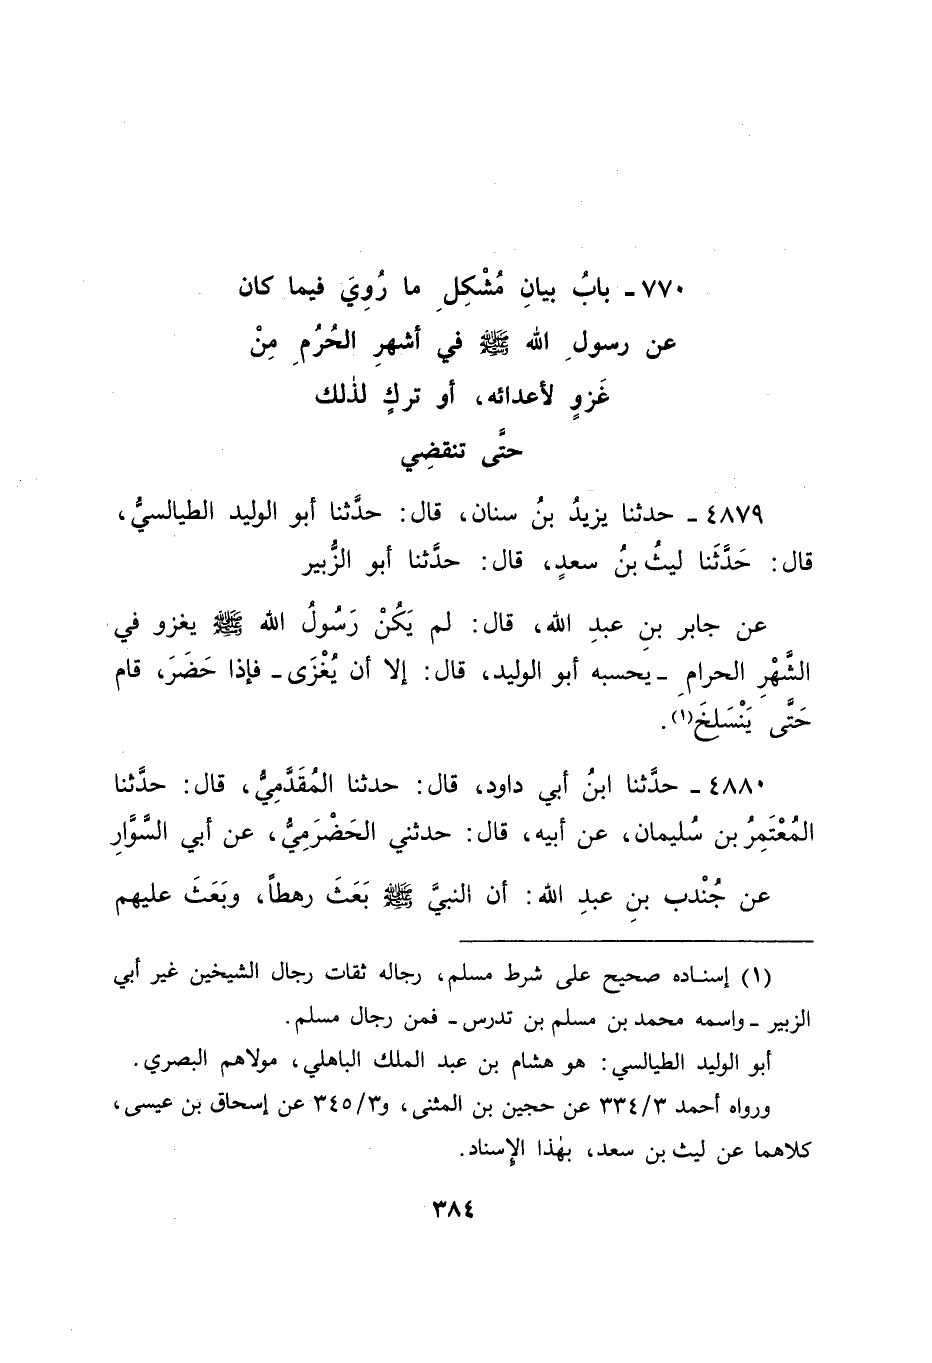 ٧٧٠ ـ بابُ بيانِ مُشْكِلِ ما رُوِيَ فيما كان
عن رسولِ الله ﷺ في أشهرِ الحُرُمِ مِنْ
غَزوٍ لأعدائه، أو تركٍ لذٰلك
حتَّى تنقضِي
٤٨٧٩ ـ حدثنا يزيدُ بنُ سنان، قال: حدَّثنا أبو الوليد الطيالسيُّ،
قال: حَدَّثَنا ليثُ بنُ سعدٍ، قال: حدَّثنا أبو الزُّبير
عن جابر بنِ عبدِ الله، قال: لم يَكُنْ رَسُولُ الله ﷺ يغزو في
الشَّهْرِ الحرامِ ـ يحسبه أبو الوليد، قال: إلا أن يُغْزَى ـ فإذا حَضَرَ، قام
حَتَّى يَنْسَلِخَ(١).
٤٨٨٠ ـ حدَّثنا ابنُ أبي داود، قال: حدثنا المُقَدَّمِيُّ، قال: حدَّثنا
المُعْتَمِرُ بن سُليمان، عن أبيه، قال: حدثني الحَضْرَمِيُّ، عن أبي السَّوَّارِ
عن جُنْدب بنِ عبدِ الله: أن النبيَّ ﷺ بَعَثَ رهطاً، وبَعَثَ عليهم
(١) إسناده صحيح على شرط مسلم، رجاله ثقات رجال الشيخين غير أبي
الزبير ـ واسمه محمد بن مسلم بن تدرس ـ فمن رجال مسلم.
أبو الوليد الطيالسي: هو هشام بن عبد الملك الباهلي، مولاهم البصري.
ورواه أحمد ٣٣٤/٣ عن حجين بن المثنى، و٣٤٥/٣ عن إسحاق بن عيسى،
كلاهما عن ليث بن سعد، بهٰذا الإِسناد.
٣٨٤